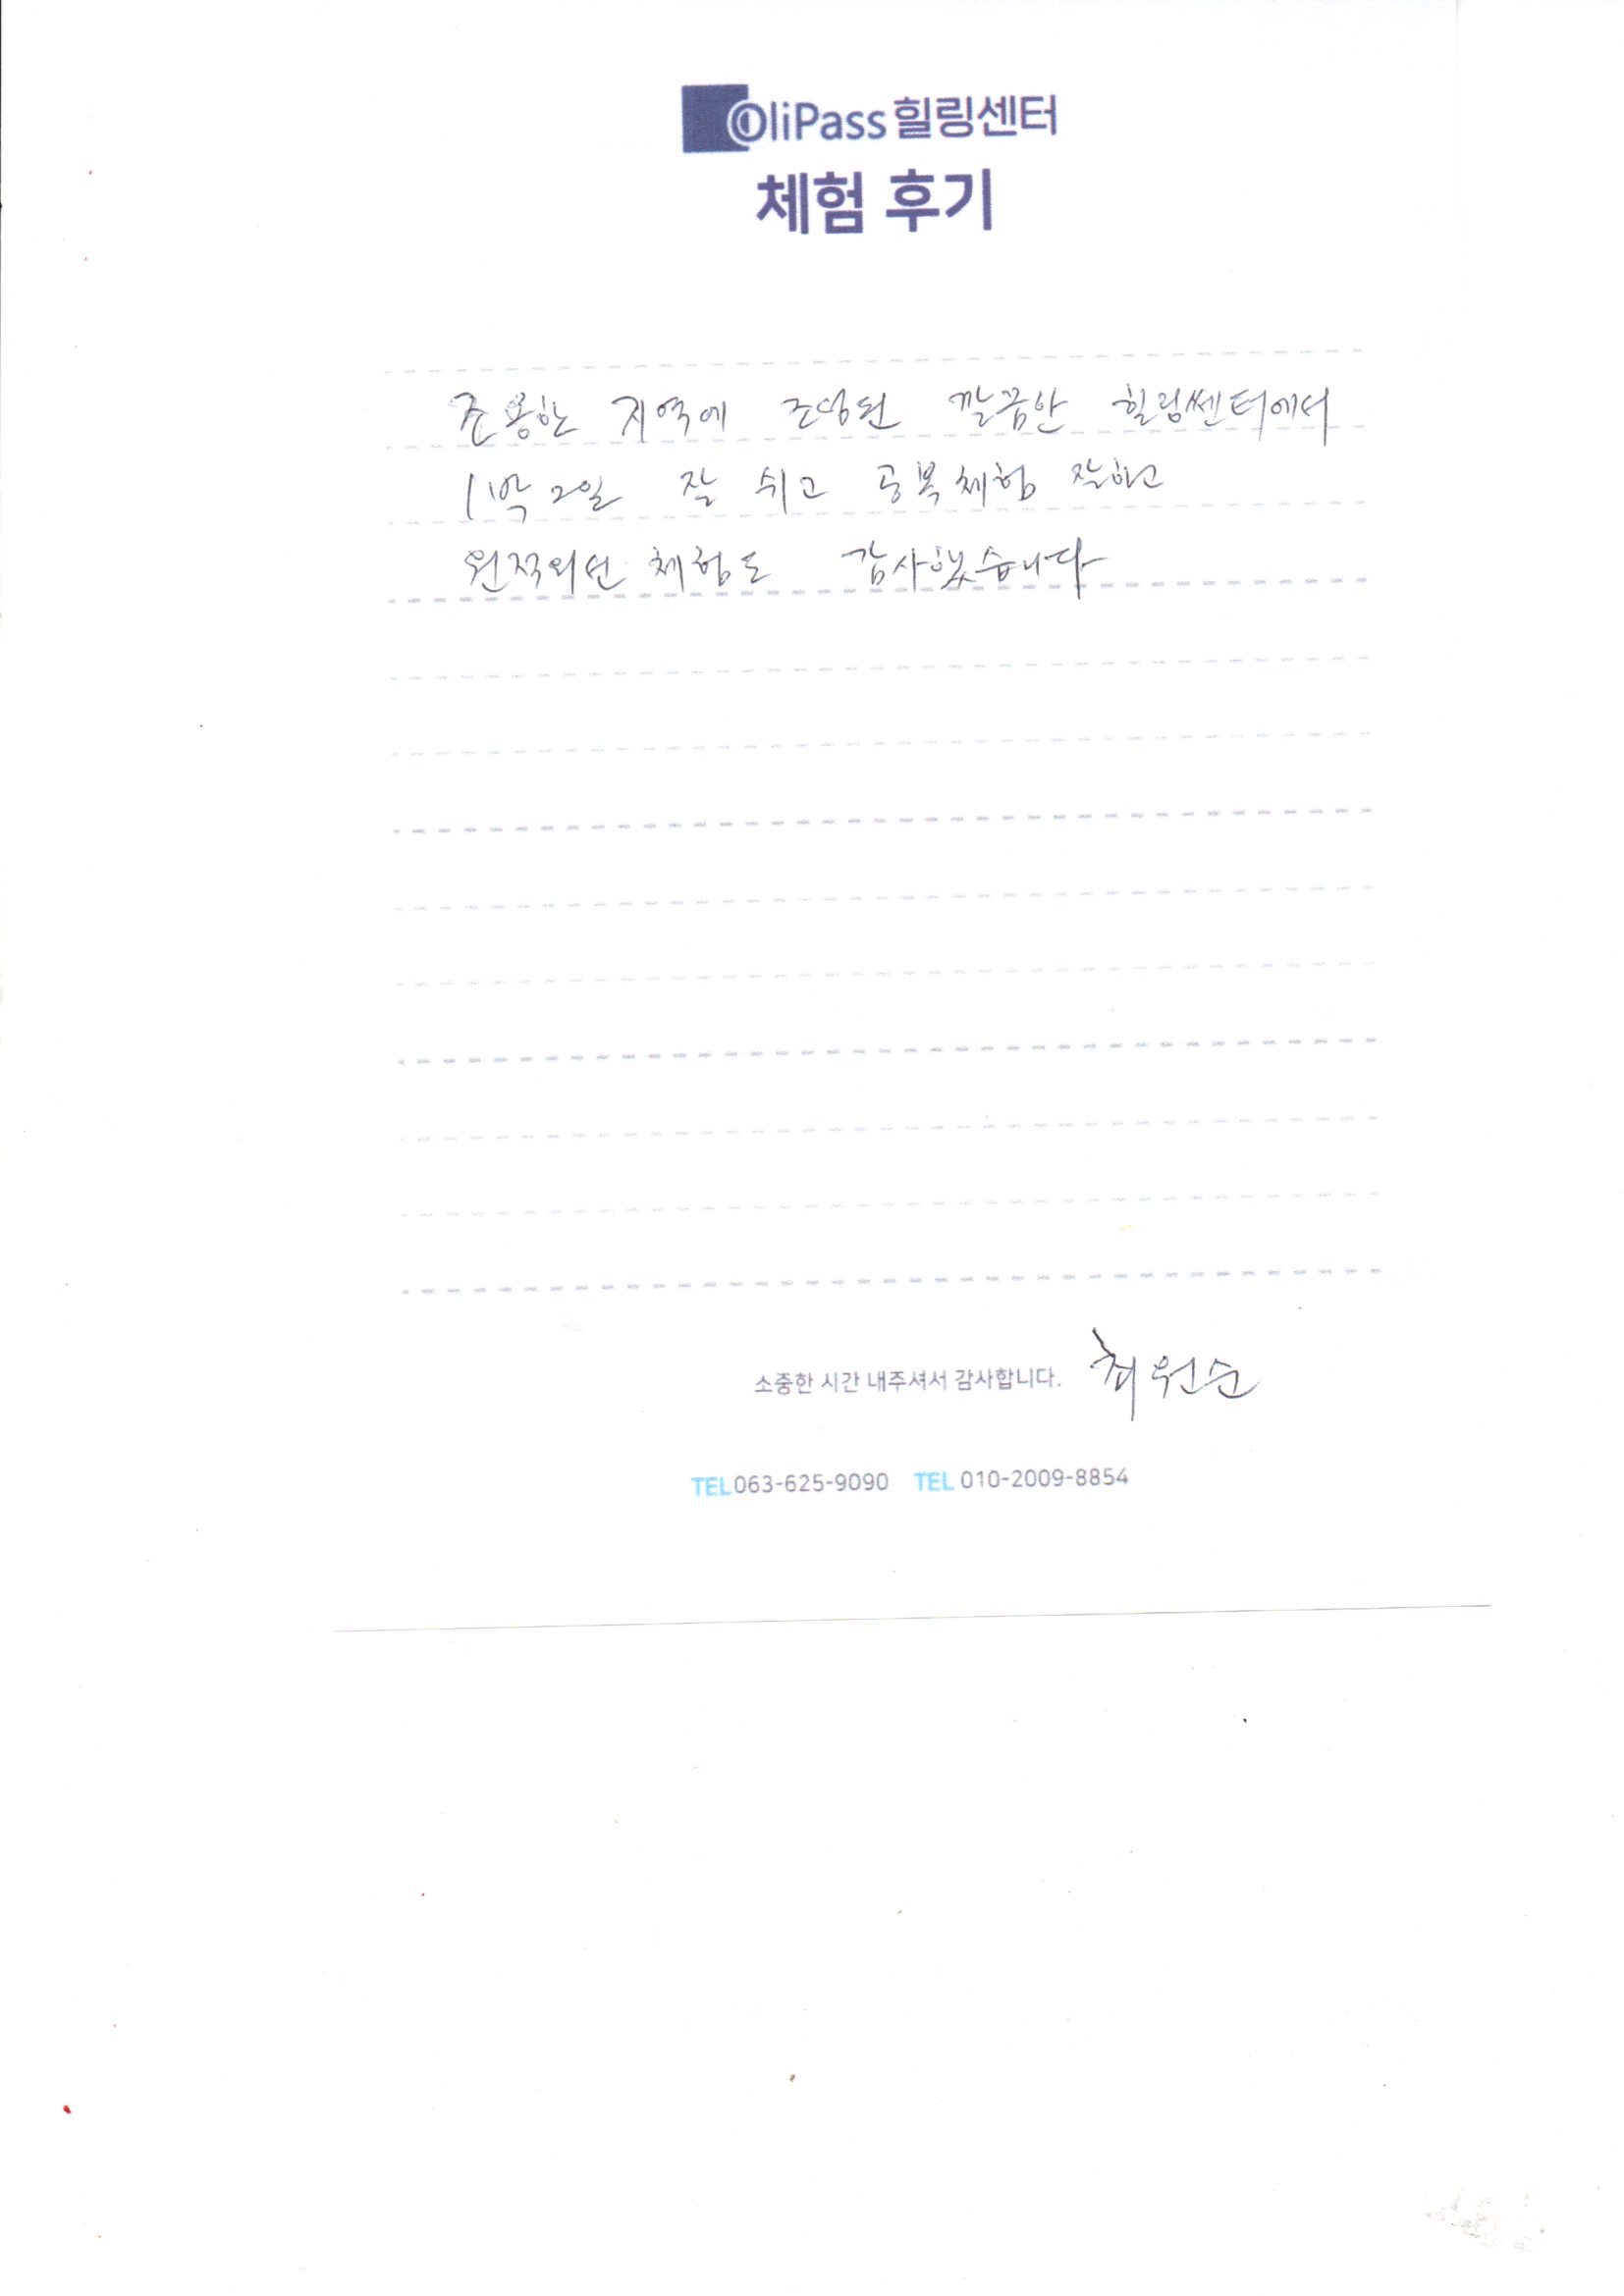 OliPass 힐링센터
체험 후기
조용한 지역에 조성된 깔끔한 힐링쎈터에서
1박 2일 잘 쉬고 공복체험 잘하고
원적외선 체험도 감사했습니다
소중한 시간 내주셔서 감사합니다. 최원순
TEL 063-625-9090 TEL 010-2009-8854